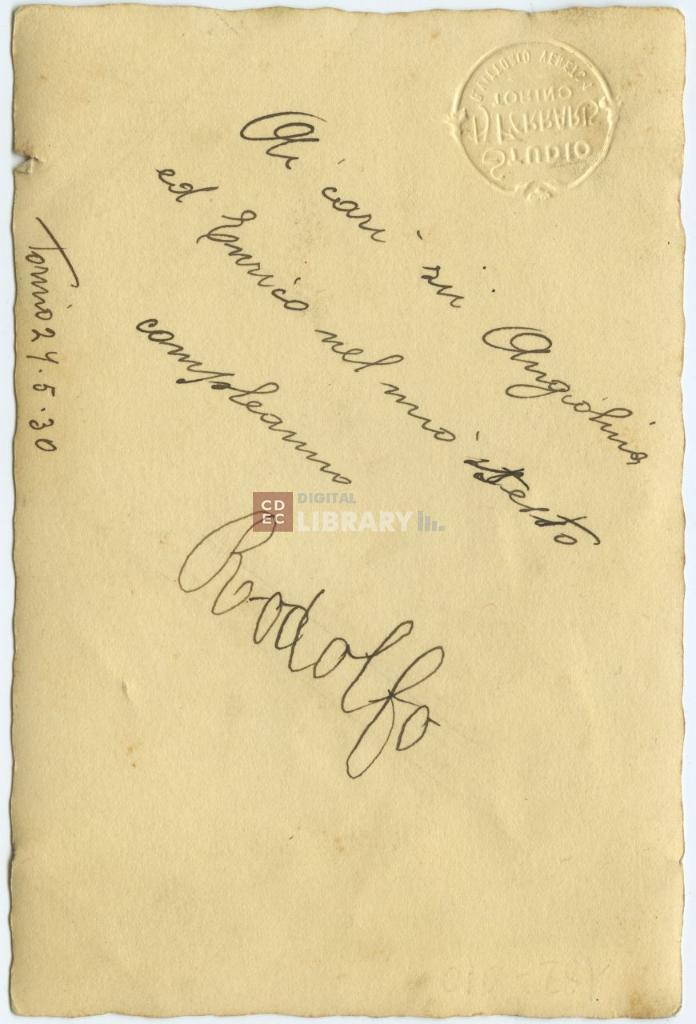 Ai cari zii Angiolina
ed Enrico nel mio
compleanno
Rodolfo
Torino 24.5.30
STUDIO
FERRARIS
TORINO
CDEC DIGITAL LIBRARY